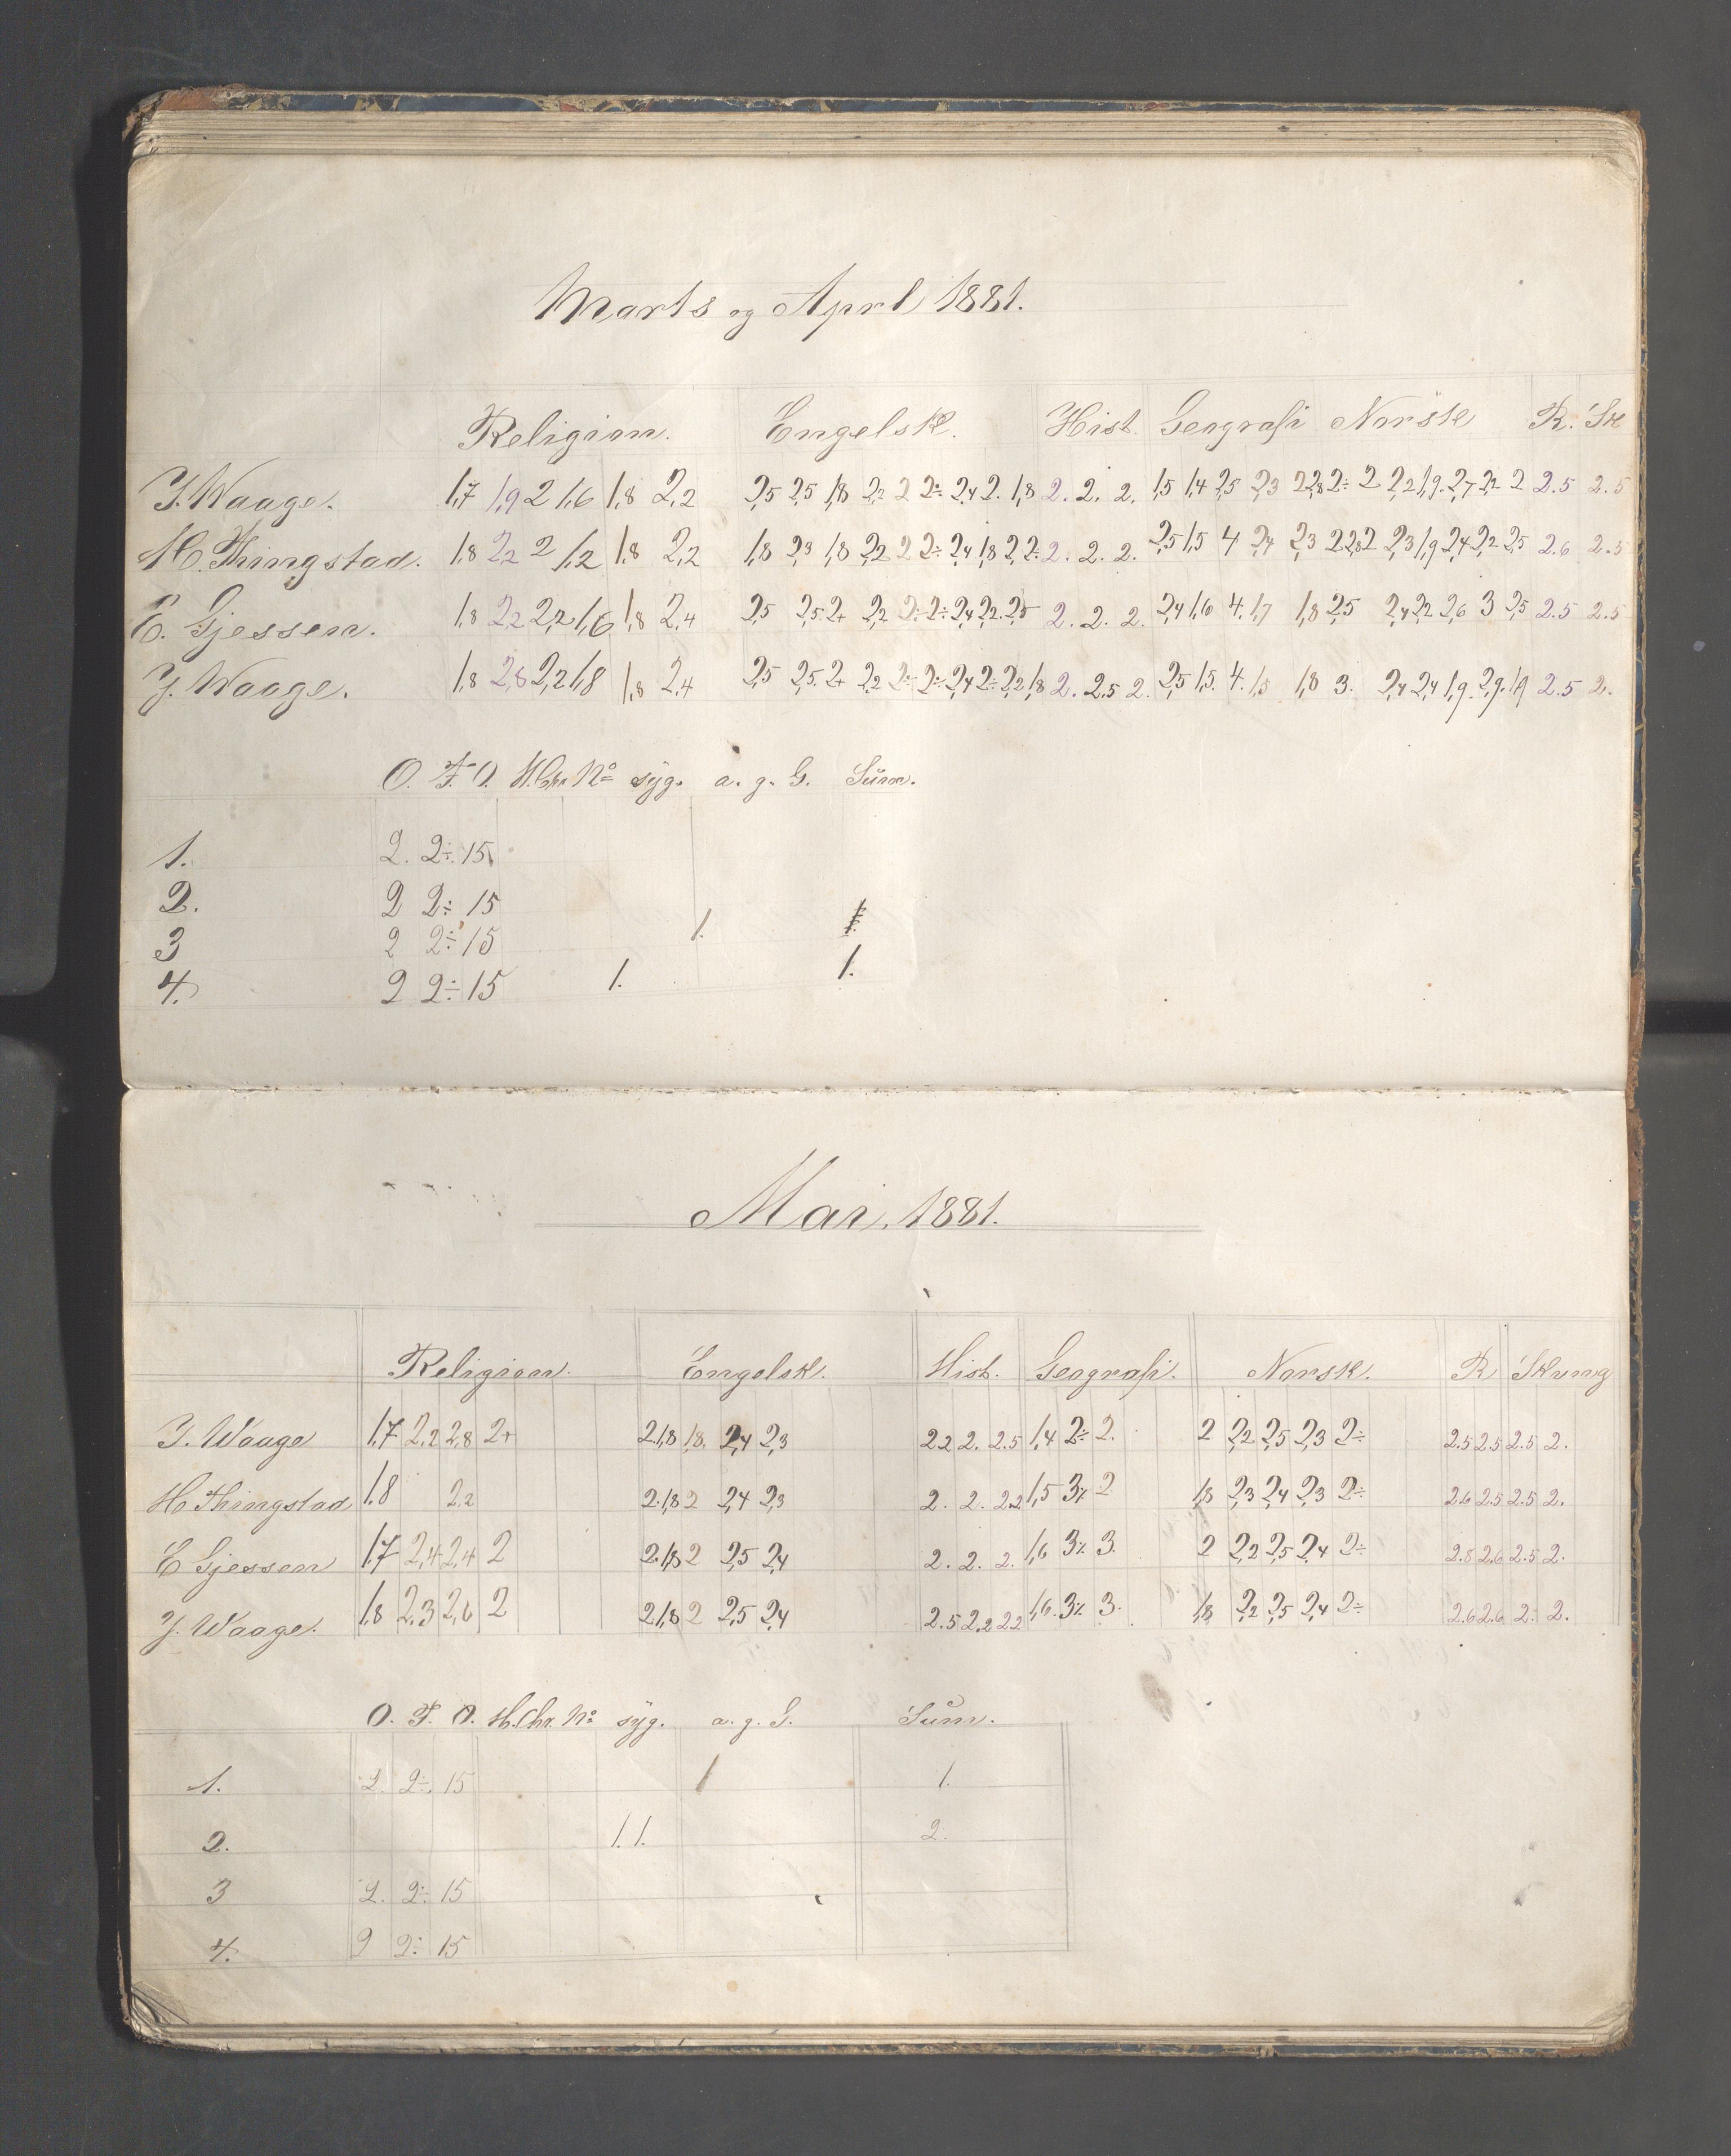 Marts og Aprl 1881.
Religion. Engelsk. Hist. Geografi Norsk R. Sk
J. Waage. 1,7 1,9 2 1,6 1,8 2,2 2,5 2,5 1,8 2,2 2 2÷ 2,4 2. 1,8 2. 2. 2. 1,5 1,4 2,5 2,3 2 2,8 2÷ 2 2,2 1,9. 2,7 2,2 2 2.5 2.5
H. Thingstad. 1,8 2,2 2 1,2 1,8 2,2 1,8 2,3 1,8 2,2 2 2÷ 2,4 1,8 2,2 2÷ 2. 2. 2. 2,5 1,5 4 2,4 2,3 2 2,8 2 2,3 1,9 2,4 2,2 2,5 2.6 2.5
E. Gjessen. 1,8 2,2 2,2 1,6 1,8 2,4 2,5 2,5 2+ 2,2 2÷ 2÷ 2,4 2,2. 2,5 2. 2. 2. 2,4 1,6 4. 1,7 1,8 2,5 2,4 2,2 2,6 3 2,5 2.5 2.5
J. Waage. 1,8 2,8 2,2 1,8 1,8 2,4 2,5 2,5 2+ 2,2 2÷ 2÷ 2,4 2÷ 2,2 1,8 2. 2.5 2. 2,5 1,5. 4. 1,5 1,8 3. 2,4 2,4 1,9. 2,9. 1,9 2.5 2.
O. F. O. H.Chr. No syg. a. g. G. Sum.
1. 2. 2÷ 15
2. 2 2÷ 15
3 2 2÷ 15 1.
4. 2 2÷ 15 1. 1.
Mai. 1881.
Religion. Engelsk. Hist. Geografi. Norsk. R Skrivng
J. Waage 1,7 2,2 2,8 2+ 2. 1,8 1,8. 2,4 2,3 2 2 2. 2.5 1,4 2÷ 2. 2 2,2 2,5 2,3 2÷ 2.5 2.5 2.5 2.
H Thingstad 1,8 2,2 2. 1,8 2 2,4 2,3 2. 2. 2.2 1,5 3% 2 1,8 2,3 2,4 2,3 2÷ 2.6 2.5 2.5 2.
E Gjessen 1,7 2,4 2,4 2 2. 1,8 2 2,5 2,4 2. 2. 2. 1,6 3% 3. 2 2,2 2,5 2,4 2÷ 2.8 2.6 2.5 2.
J. Waage. 1,8 2,3 2,6 2 2. 1,8 2 2,5 2,4 2.5 2.2 2.2 1,6. 3% 3. 1,8 2,2 2,5 2,4 2÷ 2.6 2.6 2. 2.
O. F. O. H.Chr. No syg. a. g. G. Sum.
1. 2. 2÷. 15 1 1.
2. 1. 1. 2.
3 2. 2÷ 15
4. 2 2÷ 15